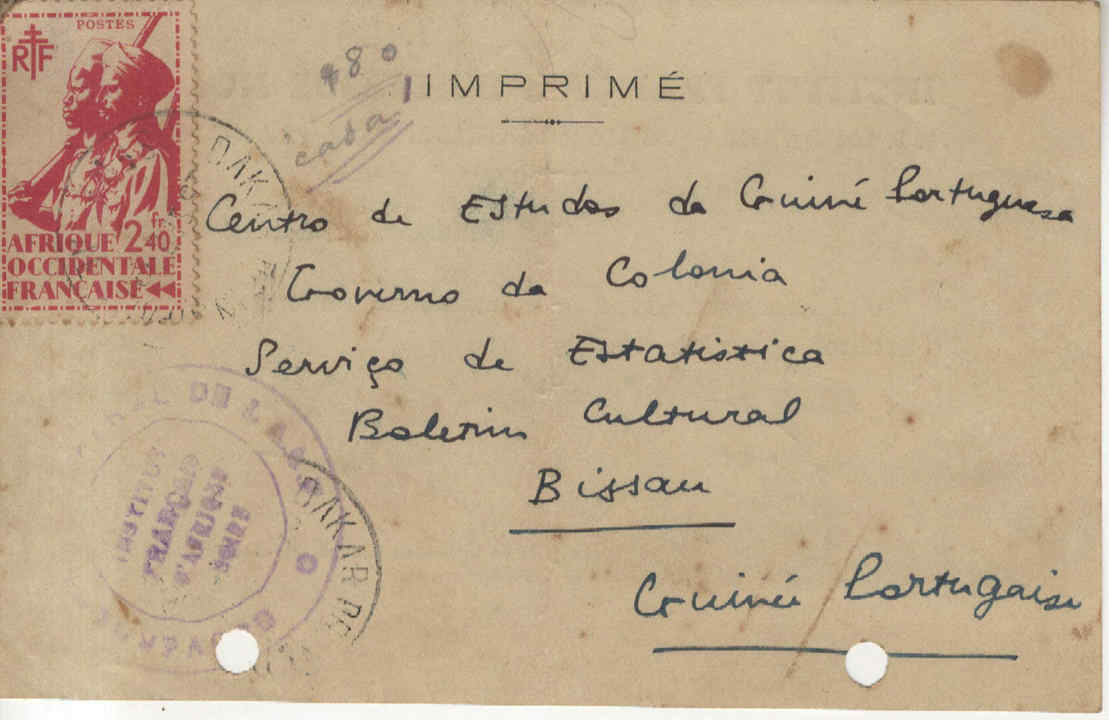 POSTES
RF
AFRIQUE 2fr.40
OCCIDENTALE
FRANÇAISE
480
casa
IMPRIMÉ
Centro de Estudos da Guiné Portuguesa
Governo da Colonia
Serviço de Estatistica
Boletim Cultural
Bissau
Guinée Portugaise
DAKAR
INSTITUT
FRANÇAIS
D'AFRIQUE
NOIRE
DAKAR